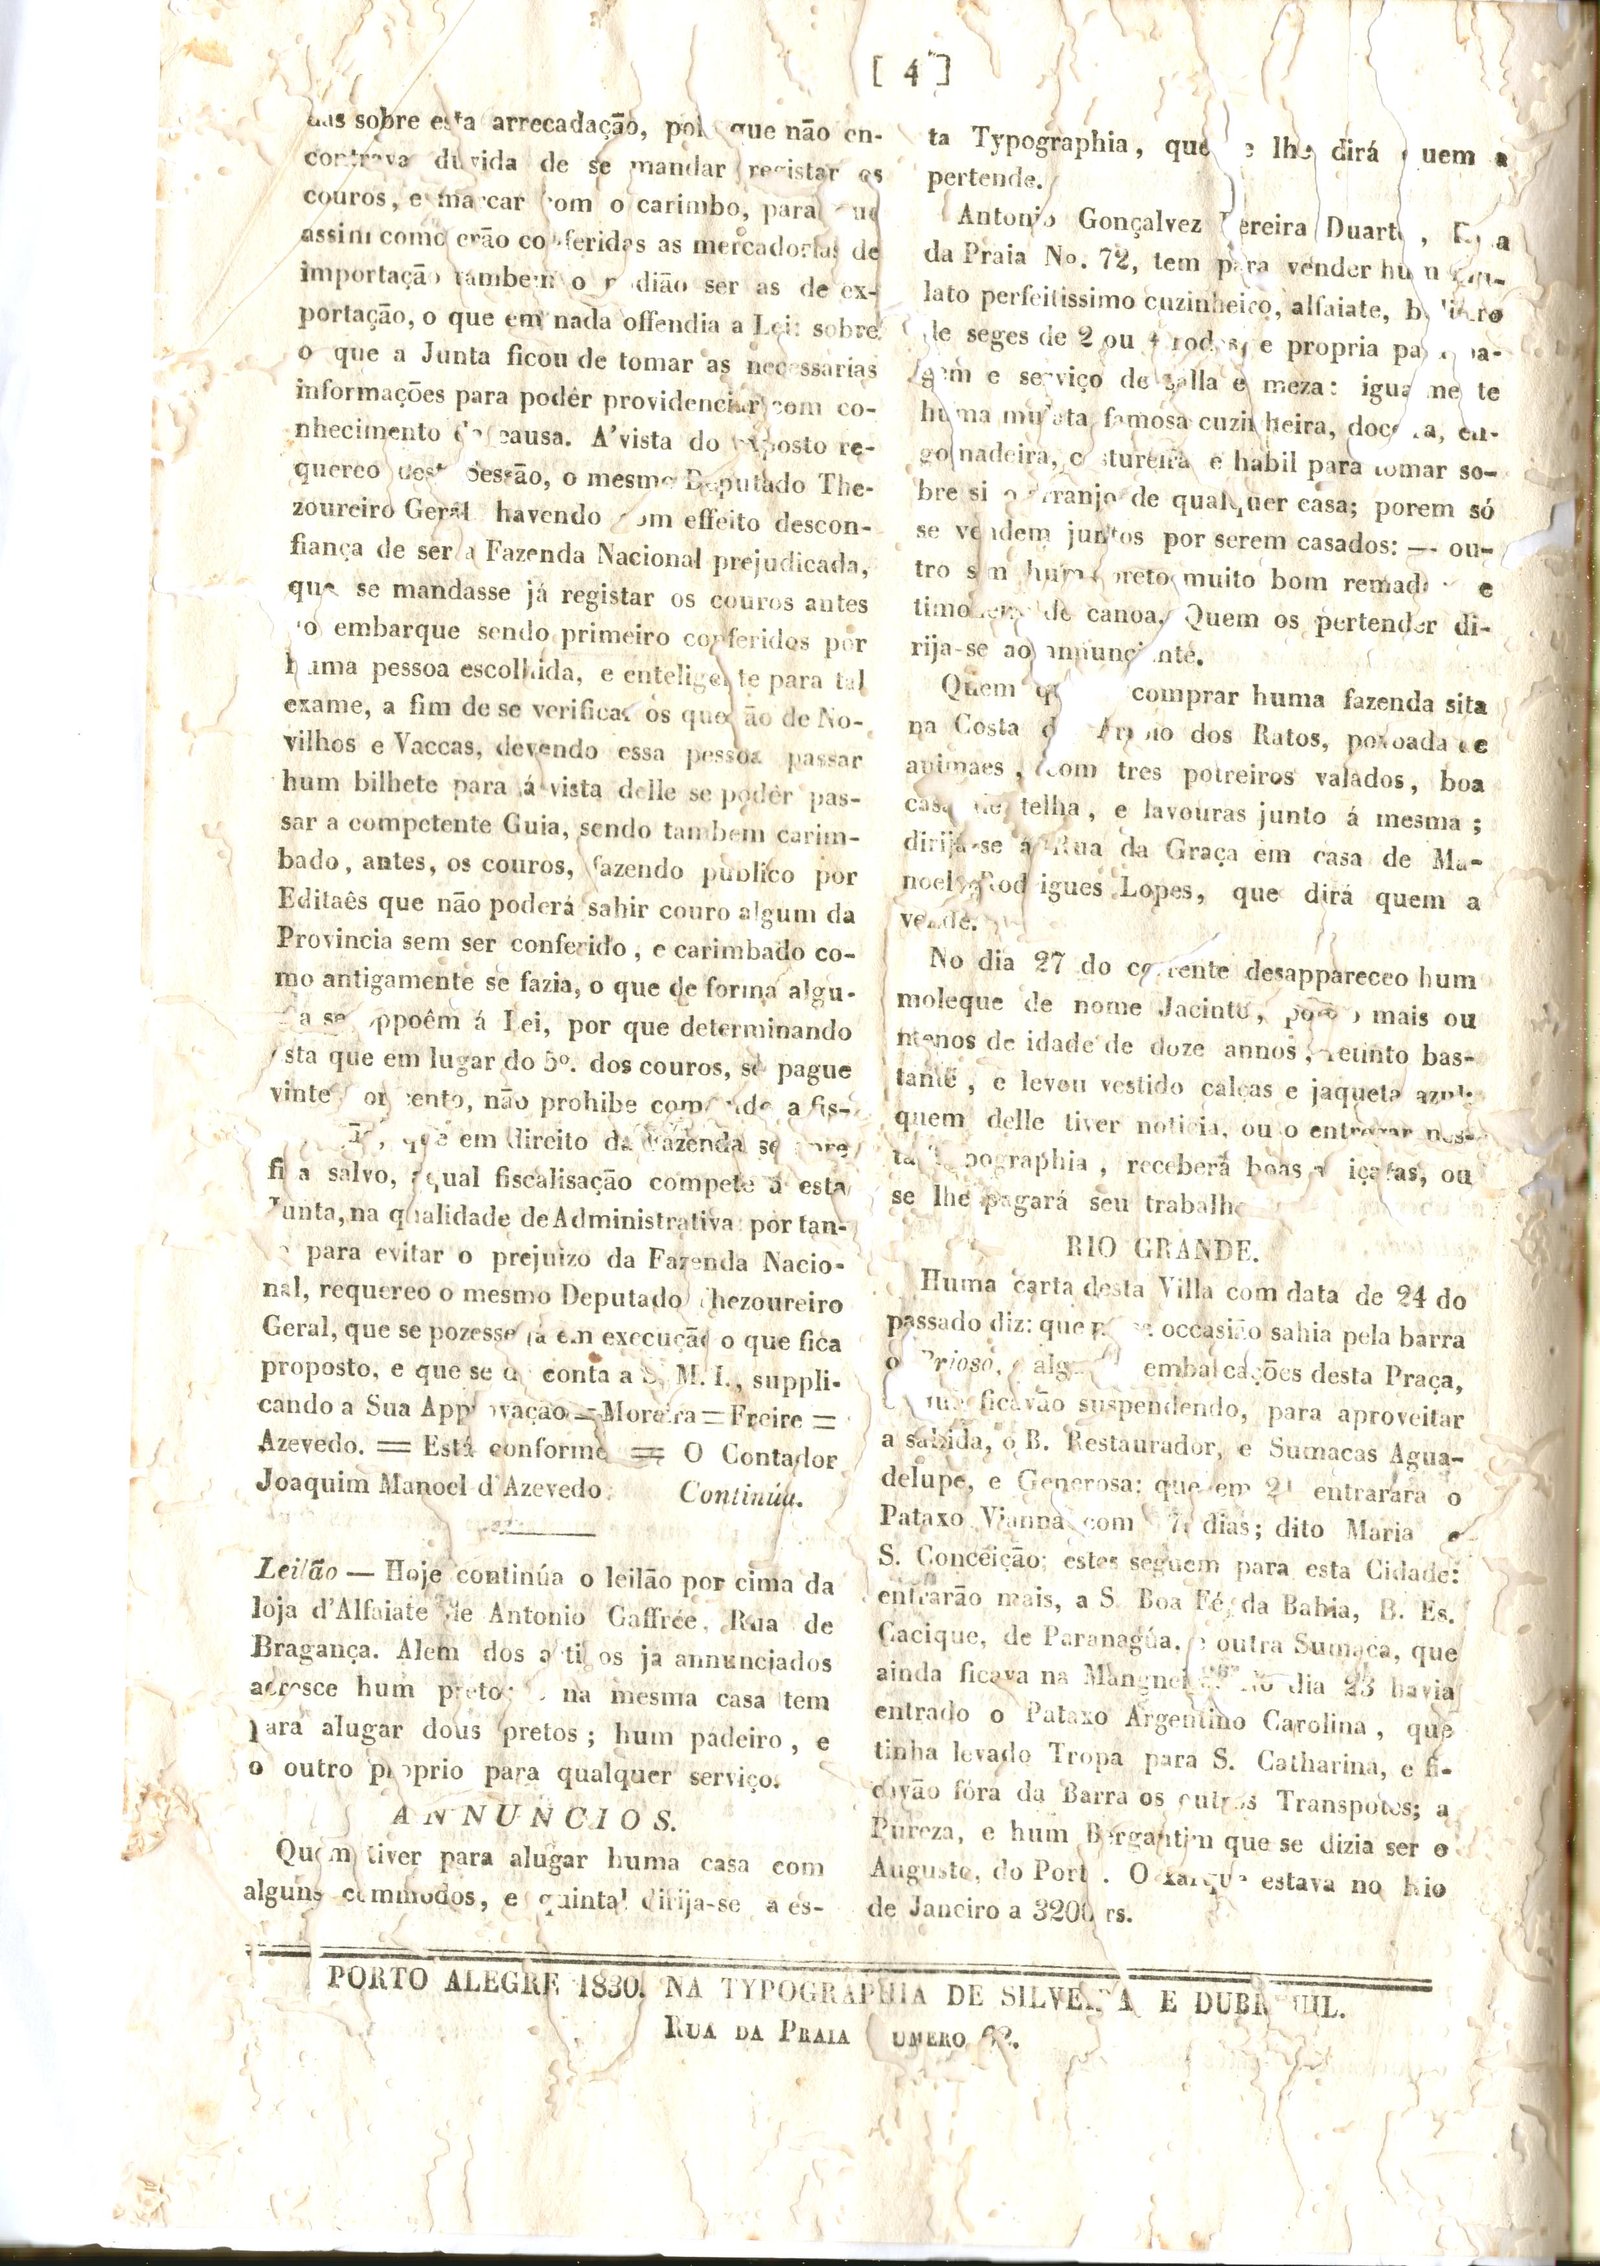 [ 4 ]
das sobre esta arrecadação, por que não en-
contrava duvida de se mandar registar os
couros, e marcar com o carimbo, para que
assim como erão conferidas as mercadorias de
importação tambem o podião ser as de ex-
portação, o que em nada offendia a Lei: sobre
o que a Junta ficou de tomar as necessarias
informações para podêr providenciar com co-
nhecimento de causa. A'vista do exposto re-
quereo nesta Sessão, o mesmo Deputado The-
zoureiro Geral havendo com effeito descon-
fiança de ser a Fazenda Nacional prejudicada,
que se mandasse já registar os couros antes
do embarque sendo primeiro conferidos por
huma pessoa escolhida, e enteligente para tal
exame, a fim de se verificar os que são de No-
vilhos e Vaccas, devendo essa pessoa passar
hum bilhete para á vista delle se podêr pas-
sar a competente Guia, sendo tambem carim-
bado, antes, os couros, fazendo publico por
Editaês que não poderá sahir couro algum da
Provincia sem ser conferido, e carimbado co-
mo antigamente se fazia, o que de forma algu-
ma se oppoêm á Lei, por que determinando
esta que em lugar do 5º. dos couros, se pague
vinte por cento, não prohibe com a fis-
que em direito da Fazenda sempre
fica salvo, a qual fiscalisação compete a esta
Junta, na qualidade de Administrativa: por tan-
to para evitar o prejuizo da Fazenda Nacio-
nal, requereo o mesmo Deputado Thezoureiro
Geral, que se pozesse já em execução o que fica
proposto, e que se dê conta a S. M. I., suppli-
cando a Sua Approvação = Moreira = Freire =
Azevedo. = Está conforme = O Contador
Joaquim Manoel d'Azevedo. Continúa.
Leilão — Hoje continúa o leilão por cima da
loja d'Alfaiate de Antonio Gaffrée, Rua de
Bragança. Alem dos artigos já annunciados
acresce hum preto: e na mesma casa tem
para alugar dous pretos; hum padeiro, e
o outro proprio para qualquer serviço.
ANNUNCIOS.
Quem tiver para alugar huma casa com
alguns commodos, e quintal dirija-se a es-
ta Typographia, que se lhe dirá quem a
pertende.
Antonio Gonçalvez Pereira Duarte, Rua
da Praia No. 72, tem para vender hum mu-
lato perfeitissimo cuzinheiro, alfaiate, bolieiro
de seges de 2 ou 4 rodas, e propria para pa-
gem e serviço de salla e meza: igualmente
huma mulata famosa cuzinheira, doceira, en-
gomadeira, costureira e habil para tomar so-
bre si o arranjo de qualquer casa; porem só
se vendem juntos por serem casados: — ou-
tro sim hum preto muito bom remador e
timoneiro de canoa. Quem os pertender di-
rija-se ao annunciante.
Quem comprar huma fazenda sita
na Costa do Arroio dos Ratos, povoada de
animaes, com tres potreiros valados, boa
casa de telha, e lavouras junto á mesma;
dirija-se á Rua da Graça em casa de Ma-
noel Rodrigues Lopes, que dirá quem a
vende.
No dia 27 do corrente desappareceo hum
moleque de nome Jacinto, pouco mais ou
menos de idade de doze annos, retinto bas-
tante, e levou vestido calças e jaqueta azul:
quem delle tiver noticia, ou o entregar nes-
ta Typographia, receberá boas alviçaras, ou
se lhe pagará seu trabalho.
RIO GRANDE.
Huma carta desta Villa com data de 24 do
passado diz: que occasião sahia pela barra
o Brioso, e algumas embarcações desta Praça,
que ficavão suspendendo, para aproveitar
a sahida, o B. Restaurador, e Sumacas Agua-
delupe, e Generosa: que em 21 entrarara o
Pataxo Vianna com 7 dias; dito Maria e
S. Conceição; estes seguem para esta Cidade:
entrarão mais, a S. Boa Fé, da Bahia, B. Es.
Cacique, de Paranagúa, e outra Sumaca, que
ainda ficava na Mangueira. No dia 23 havia
entrado o Pataxo Argentino Carolina, que
tinha levado Tropa para S. Catharina, e fi-
cavão fóra da Barra os outros Transpotes; a
Pureza, e hum Bergantim que se dizia ser o
Augusto, do Porto. O xarque estava no Rio
de Janeiro a 3200 rs.
PORTO ALEGRE 1830. NA TYPOGRAPHIA DE SILVEIRA E DUBREUIL.
RUA DA PRAIA NUMERO 62.